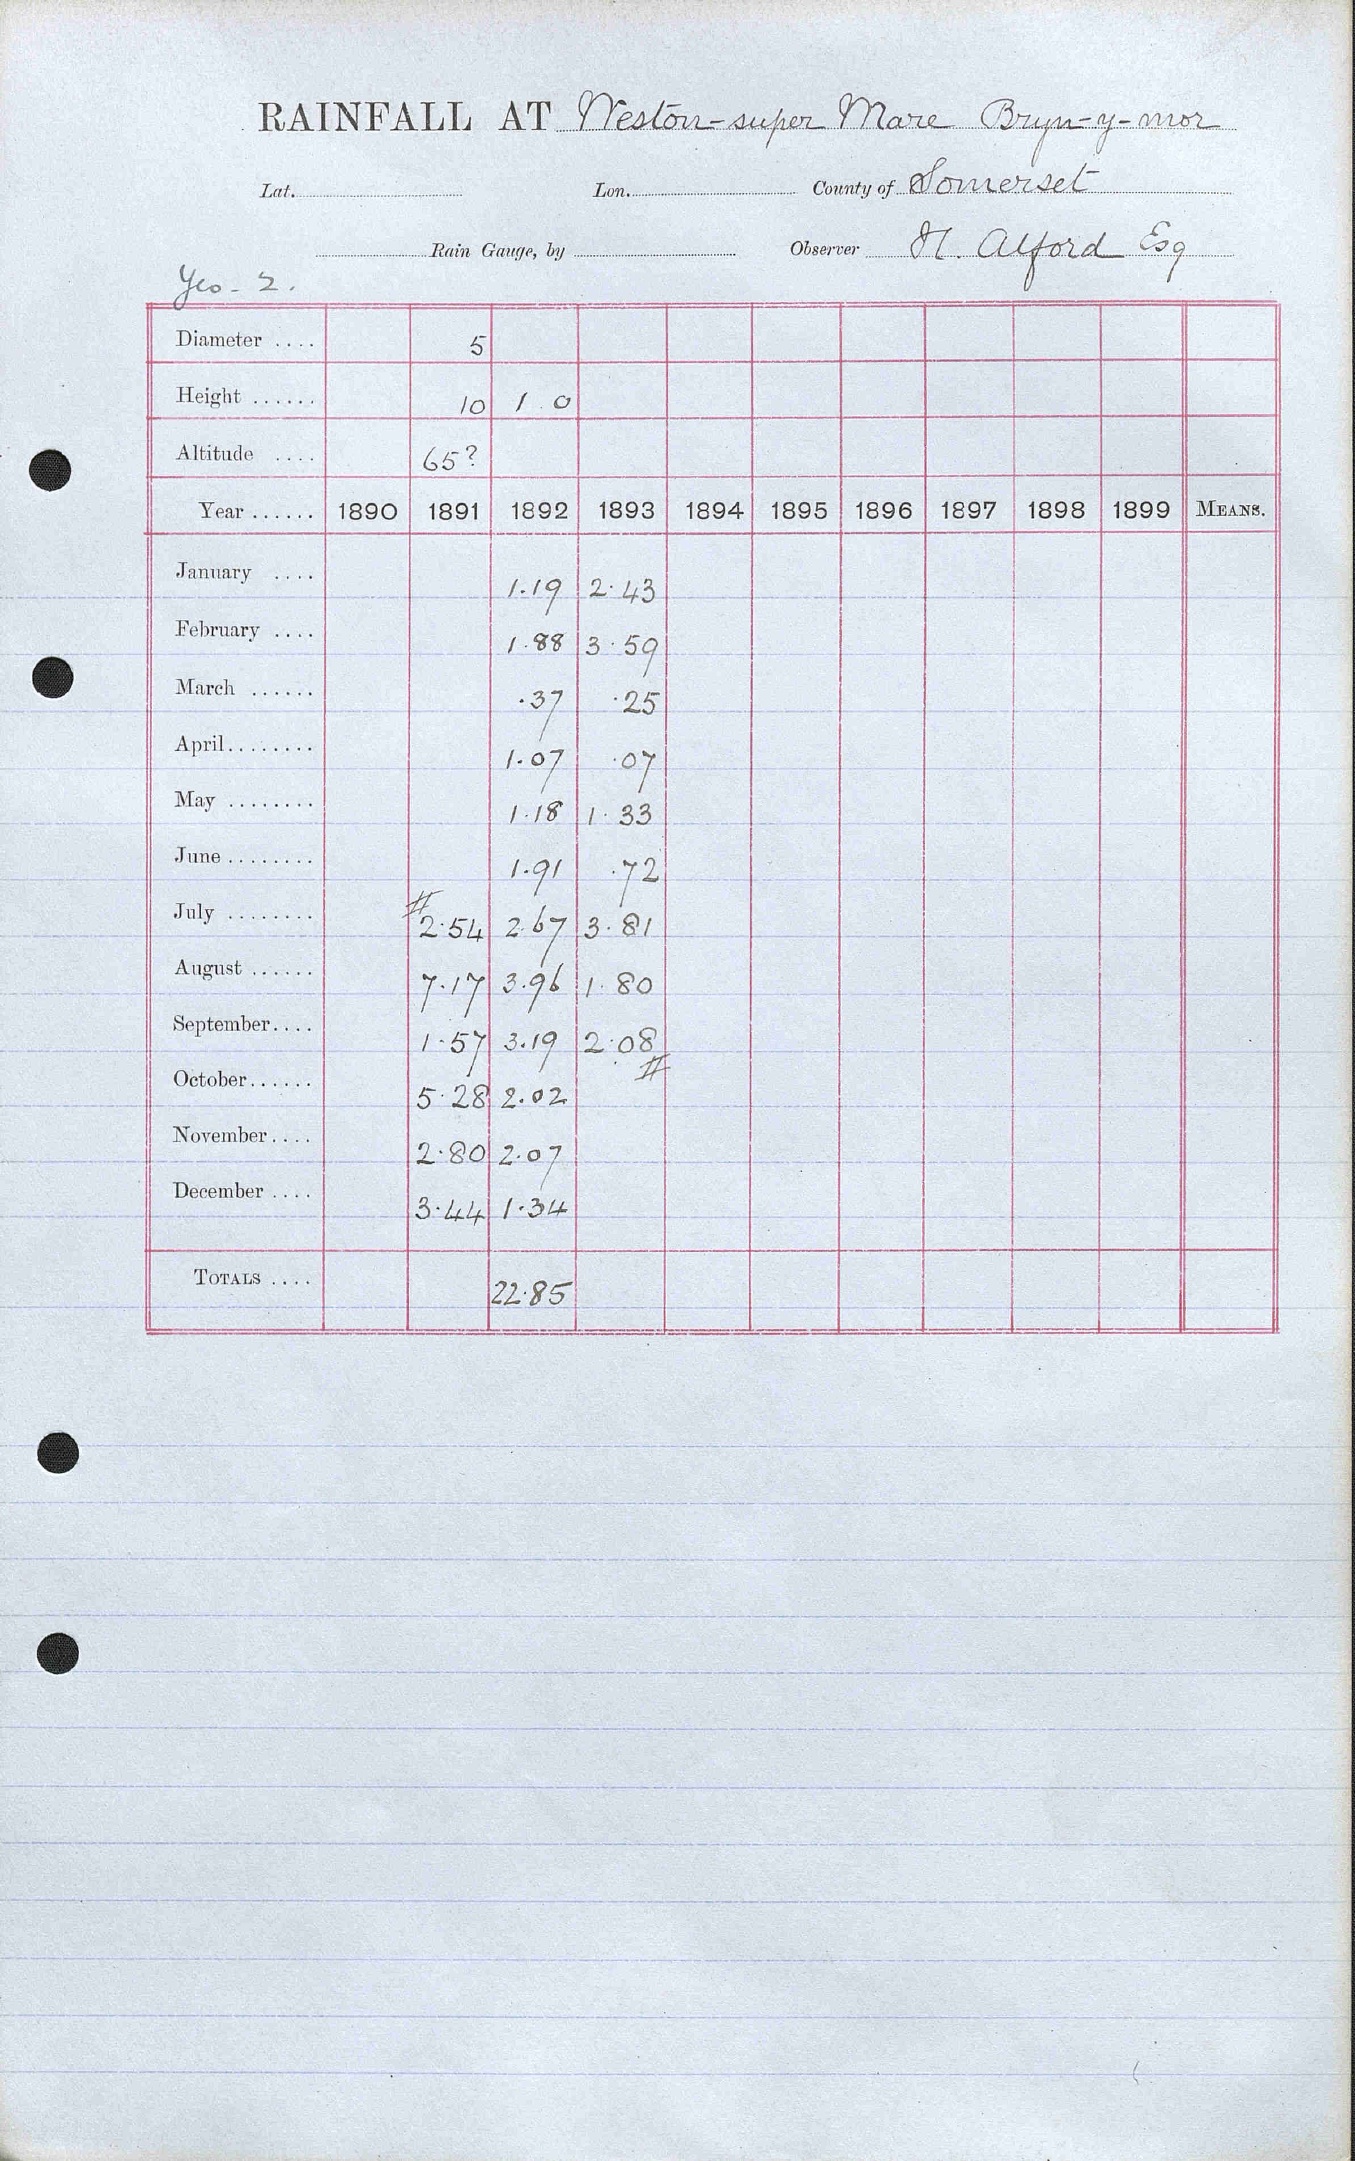 RAINFALL AT Weston-super Mare Bryn-y-mor
Lat. Lon. County of Somerset
Rain Gauge, by Observer H. Alford Esq
Yeo - 2.
Diameter .... 5
Height ...... 10 1 0
Altitude .... 65?
Year ...... 1890 1891 1892 1893 1894 1895 1896 1897 1898 1899 MEANS.
January .... 1.19 2.43
February .... 1.88 3.59
March ...... .37 .25
April........ 1.07 .07
May ........ 1.18 1.33
June ........ 1.91 .72
July ........ # 2.54 2.67 3.81
August ...... 7.17 3.96 1.80
September.... 1.57 3.19 2.08 #
October...... 5.28 2.02
November.... 2.80 2.07
December .... 3.44 1.34
TOTALS .... 22.85